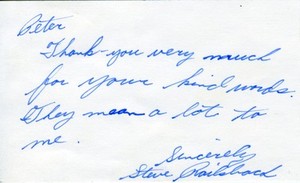 Peter
Thank-you very much
for your kind words.
They mean a lot to
me.
Sincerely
Steve Railsback